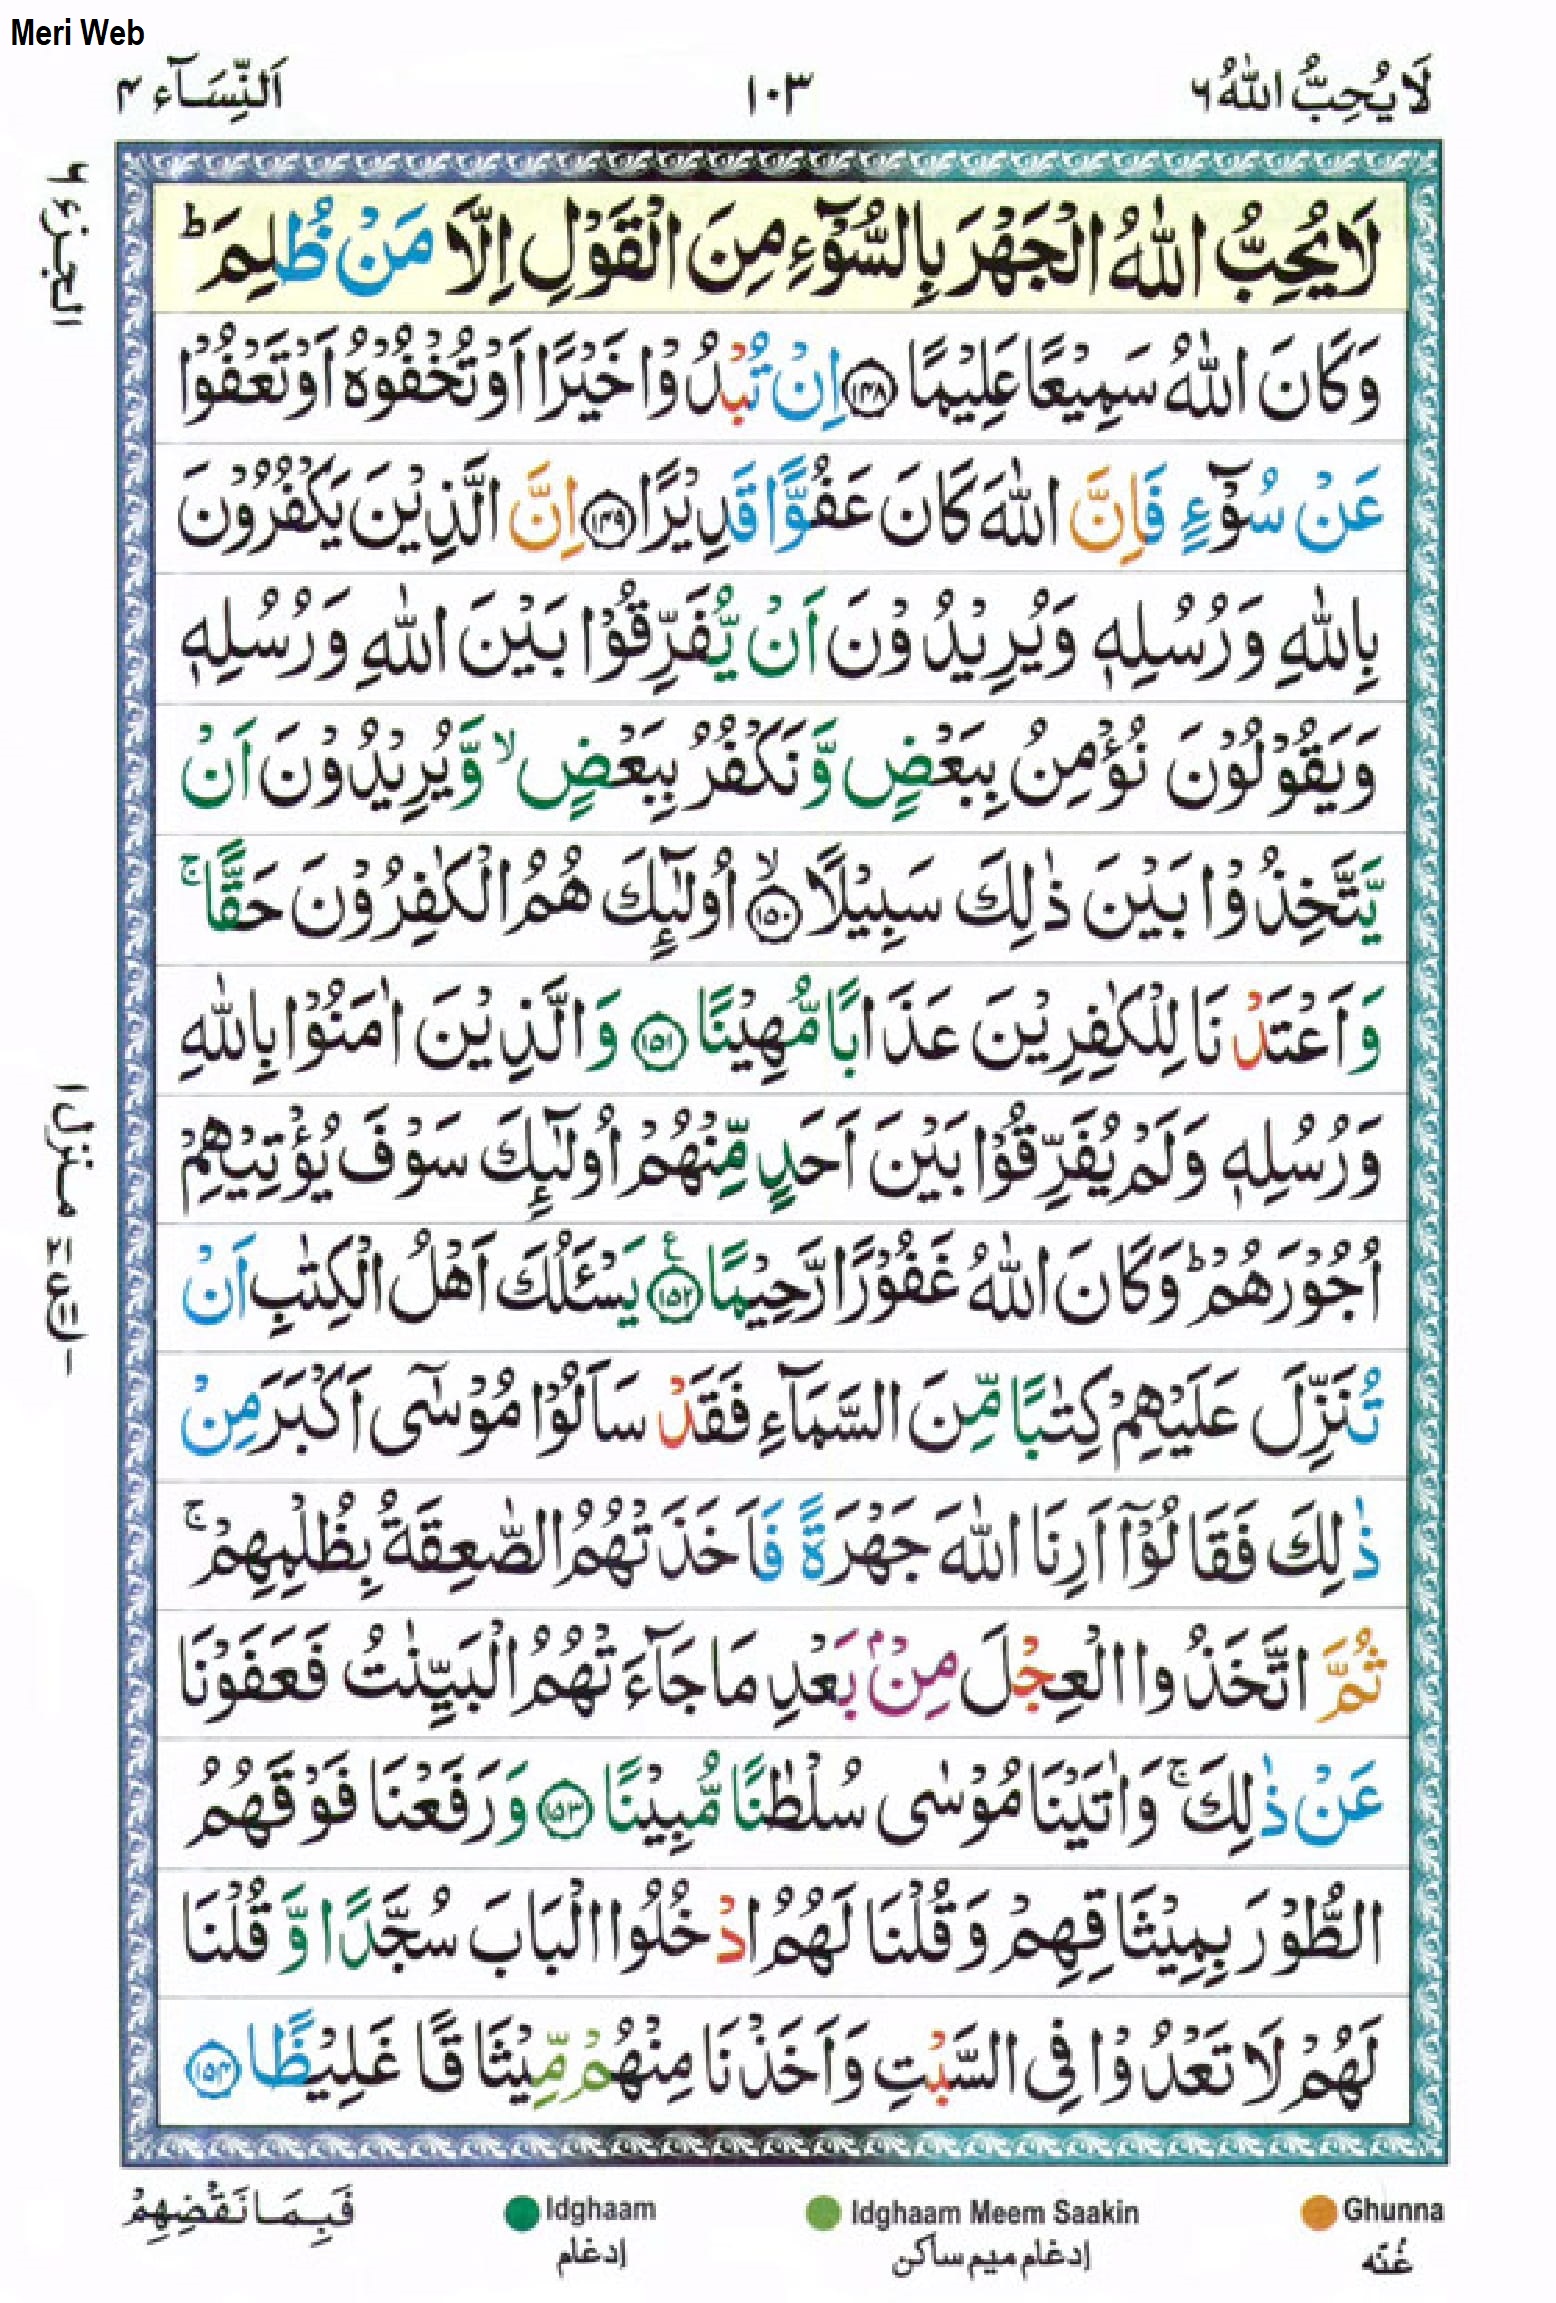 Meri Web
لَا يُحِبُّ اللّٰهُ ۶
۱۰۳
اَلنِّسَآء ۴
الجزء ۶
لَا يُحِبُّ اللّٰهُ الْجَهْرَ بِالسُّوْٓءِ مِنَ الْقَوْلِ اِلَّا مَنْ ظُلِمَ ؕ
وَكَانَ اللّٰهُ سَمِيْعًا عَلِيْمًا ۝۱۴۸ اِنْ تُبْدُوْا خَيْرًا اَوْ تُخْفُوْهُ اَوْ تَعْفُوْا
عَنْ سُوْٓءٍ فَاِنَّ اللّٰهَ كَانَ عَفُوًّا قَدِيْرًا ۝۱۴۹ اِنَّ الَّذِيْنَ يَكْفُرُوْنَ
بِاللّٰهِ وَرُسُلِهٖ وَيُرِيْدُوْنَ اَنْ يُّفَرِّقُوْا بَيْنَ اللّٰهِ وَرُسُلِهٖ
وَيَقُوْلُوْنَ نُؤْمِنُ بِبَعْضٍ وَّنَكْفُرُ بِبَعْضٍ ۙ وَّيُرِيْدُوْنَ اَنْ
يَّتَّخِذُوْا بَيْنَ ذٰلِكَ سَبِيْلًا ۙ۝۱۵۰ اُولٰٓئِكَ هُمُ الْكٰفِرُوْنَ حَقًّا ۚ
وَاَعْتَدْنَا لِلْكٰفِرِيْنَ عَذَابًا مُّهِيْنًا ۝۱۵۱ وَالَّذِيْنَ اٰمَنُوْا بِاللّٰهِ
وَرُسُلِهٖ وَلَمْ يُفَرِّقُوْا بَيْنَ اَحَدٍ مِّنْهُمْ اُولٰٓئِكَ سَوْفَ يُؤْتِيْهِمْ
اُجُوْرَهُمْ ؕ وَكَانَ اللّٰهُ غَفُوْرًا رَّحِيْمًا ۝۱۵۲ ع يَسْـَٔلُكَ اَهْلُ الْكِتٰبِ اَنْ
تُنَزِّلَ عَلَيْهِمْ كِتٰبًا مِّنَ السَّمَآءِ فَقَدْ سَاَلُوْا مُوْسٰٓى اَكْبَرَ مِنْ
ذٰلِكَ فَقَالُوْٓا اَرِنَا اللّٰهَ جَهْرَةً فَاَخَذَتْهُمُ الصّٰعِقَةُ بِظُلْمِهِمْ ۚ
ثُمَّ اتَّخَذُوا الْعِجْلَ مِنْۢ بَعْدِ مَا جَآءَتْهُمُ الْبَيِّنٰتُ فَعَفَوْنَا
عَنْ ذٰلِكَ ۚ وَاٰتَيْنَا مُوْسٰى سُلْطٰنًا مُّبِيْنًا ۝۱۵۳ وَرَفَعْنَا فَوْقَهُمُ
الطُّوْرَ بِمِيْثَاقِهِمْ وَقُلْنَا لَهُمُ ادْخُلُوا الْبَابَ سُجَّدًا وَّقُلْنَا
لَهُمْ لَا تَعْدُوْا فِى السَّبْتِ وَاَخَذْنَا مِنْهُمْ مِّيْثَاقًا غَلِيْظًا ۝۱۵۴
منزل ۱
فَبِمَا نَقْضِهِمْ
Idghaam
ادغام
Idghaam Meem Saakin
ادغام میم ساکن
Ghunna
غُنّه